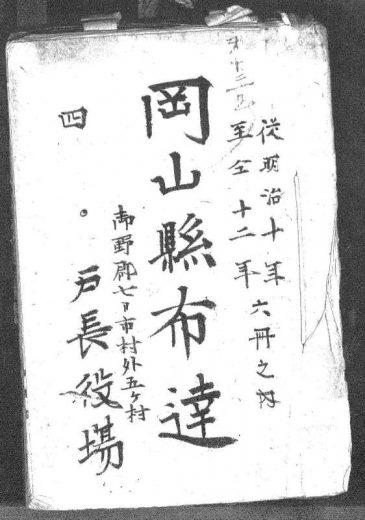 從明治十年
至仝十二年
六冊之内
岡山縣布達
御野郡七日市村外五ヶ村
戸長役場
四